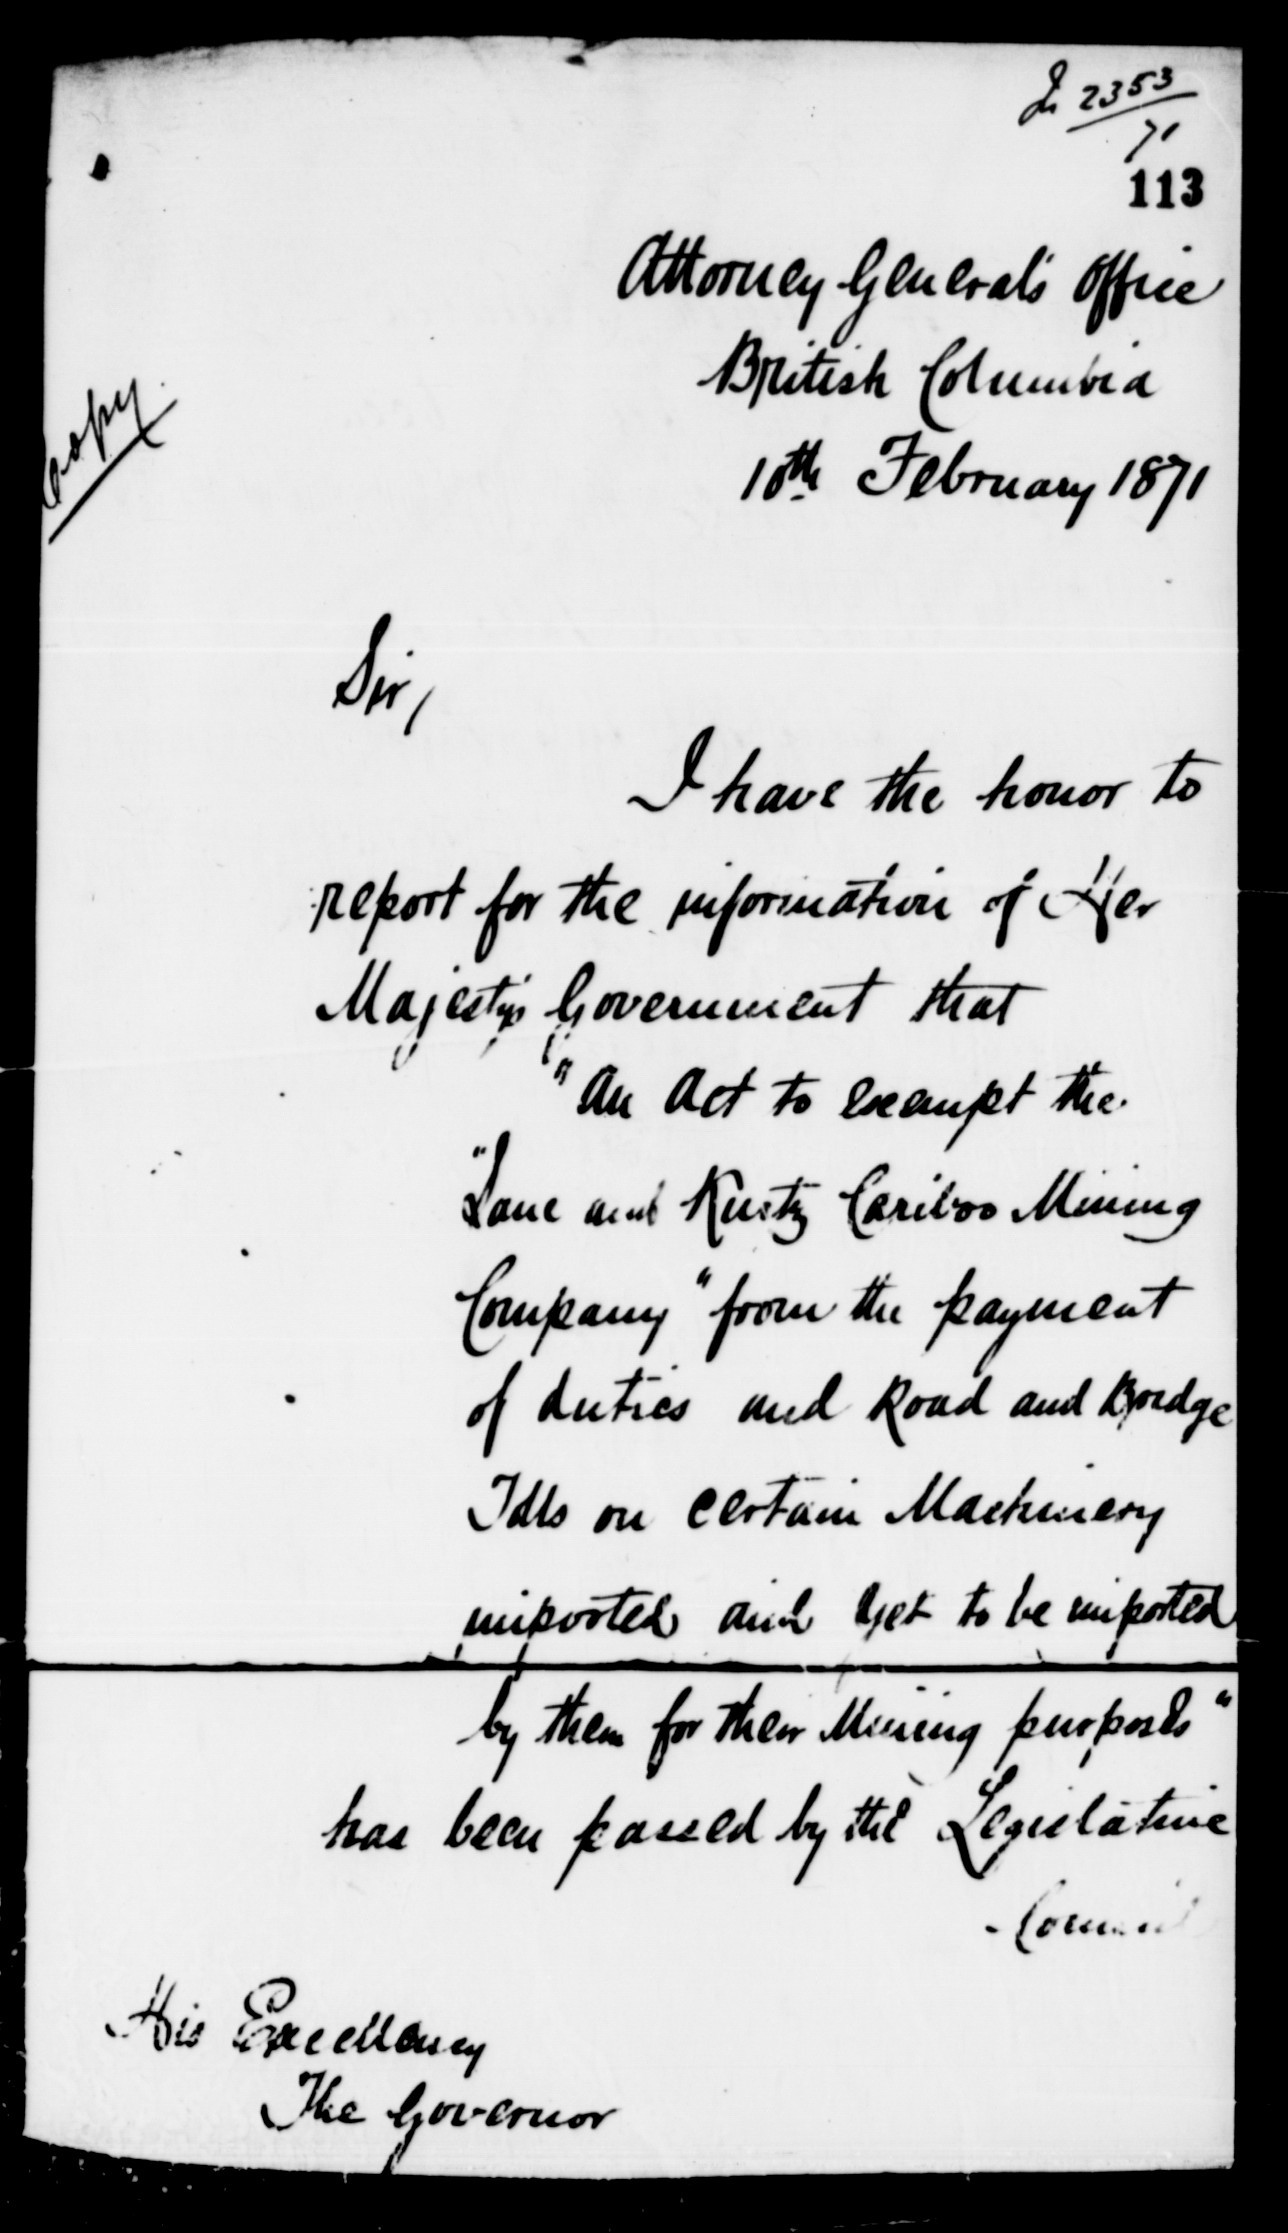 In 2353/71
113
Attorney General's Office
British Columbia
10th February 1871
Copy
Sir,
I have the honor to
report for the information of Her
Majesty's Government that
"An Act to exempt the
"Lane and Kurtz Cariboo Mining
Company" from the payment
of duties and Road and Bridge
Tolls on certain Machinery
imported and yet to be imported
by them for their Mining purposes"
has been passed by the Legislative
Council
His Excellency
The Governor